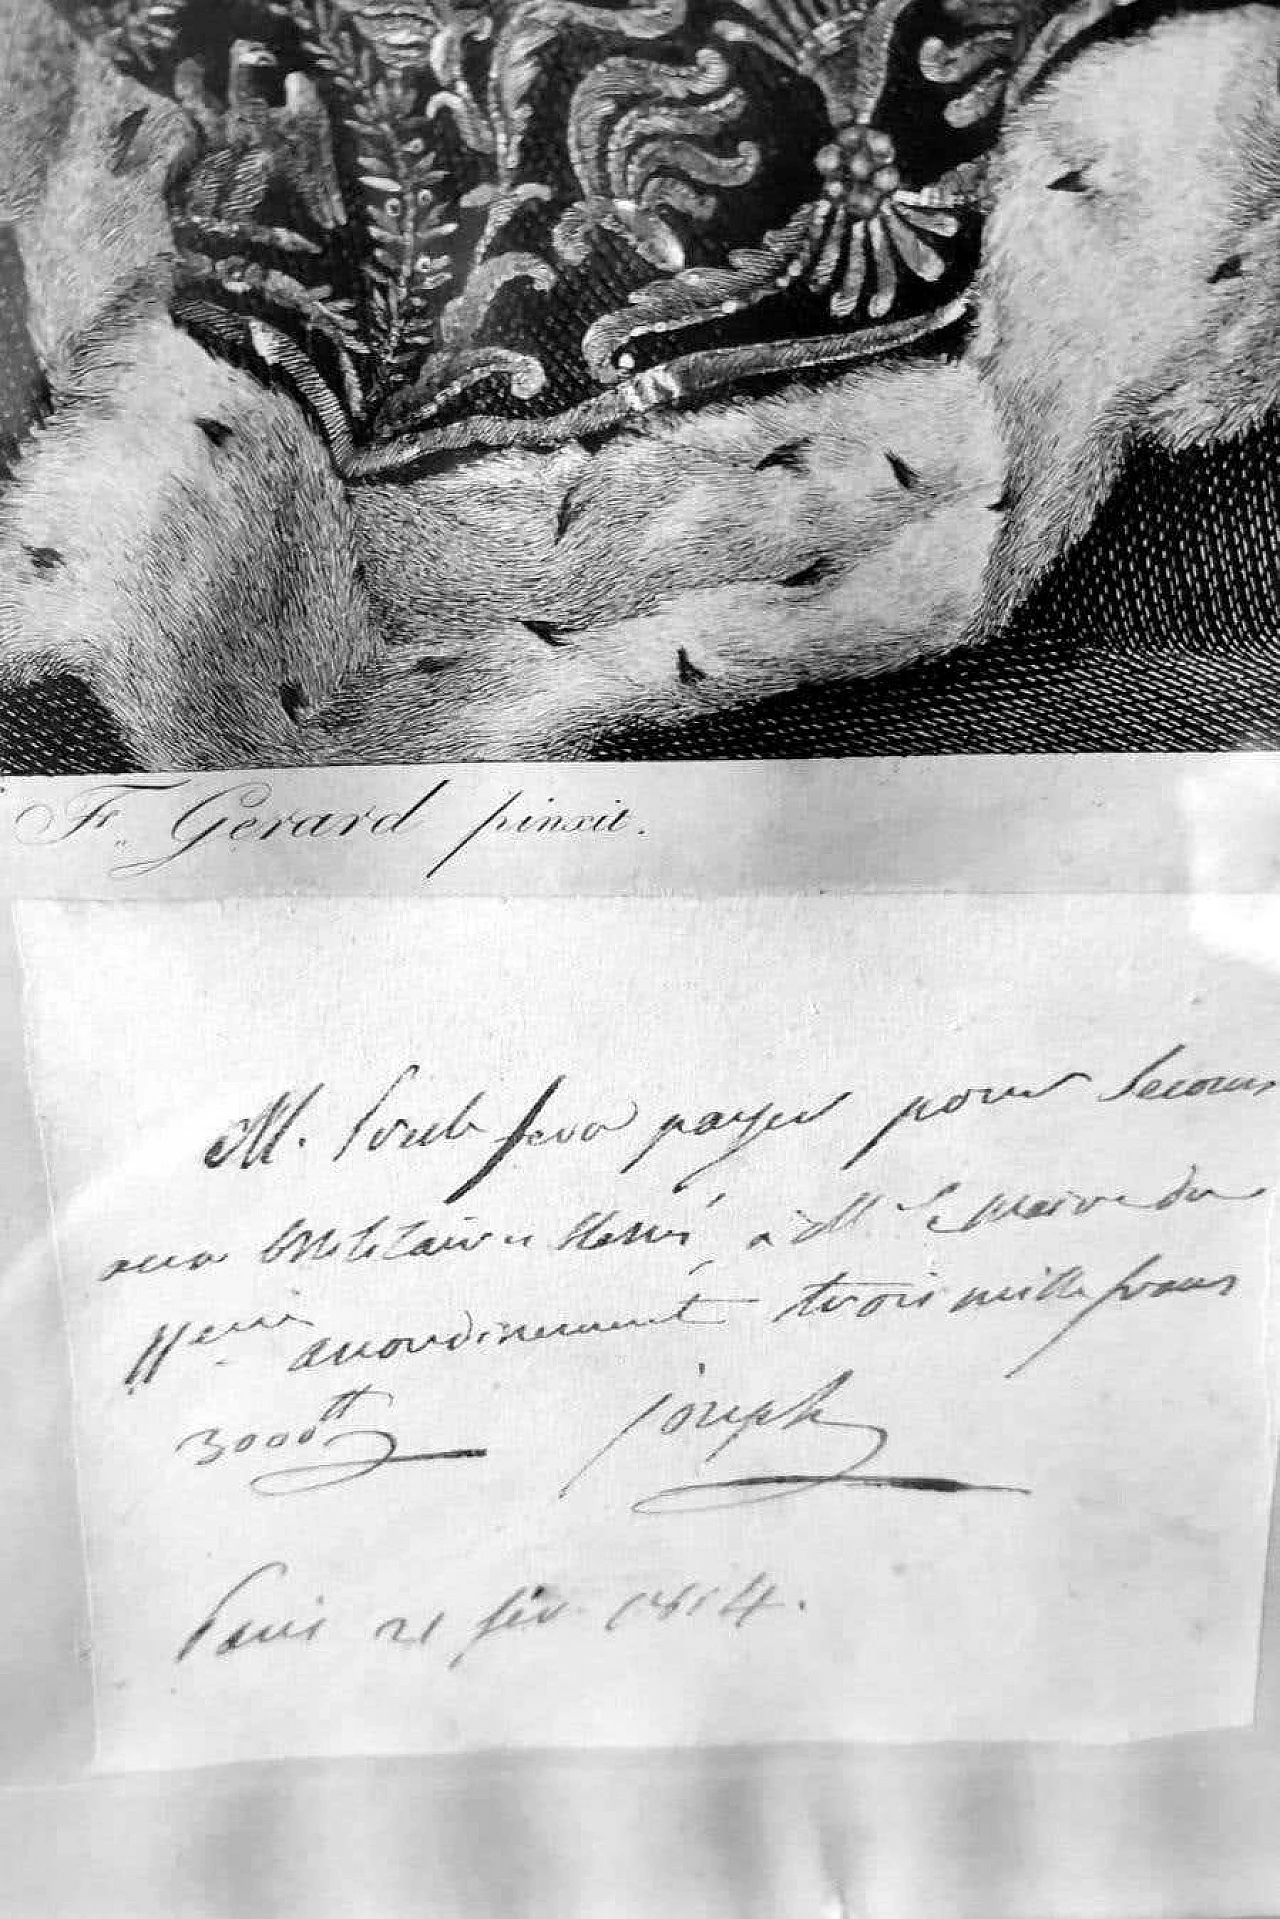 F. Gérard pinxit.
M. fera payer pour secours
aux Militaires blessés, à M. le Maire du
arrondissement trois mille francs
3000 Joseph
Paris 21 fév. 1814.